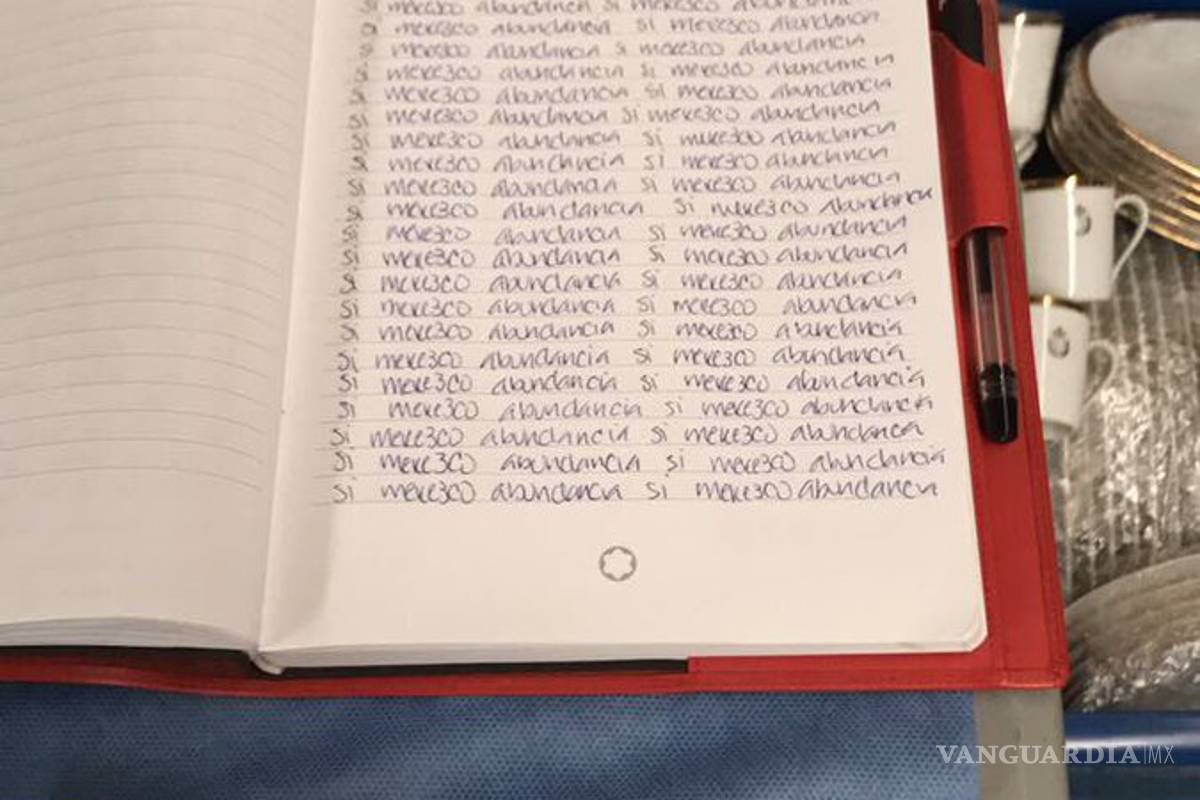 si merezco abundancia si merezco abundancia
si merezco abundancia si merezco abundancia
si merezco abundancia si merezco abundancia
si merezco abundancia si merezco abundancia
si merezco abundancia si merezco abundancia
si merezco abundancia si merezco abundancia
si merezco abundancia si merezco abundancia
si merezco abundancia si merezco abundancia
si merezco abundancia si merezco abundancia
si merezco abundancia si merezco abundancia
si merezco abundancia si merezco abundancia
si merezco abundancia si merezco abundancia
si merezco abundancia si merezco abundancia
si merezco abundancia si merezco abundancia
si merezco abundancia si merezco abundancia
si merezco abundancia si merezco abundancia
si merezco abundancia si merezco abundancia
si merezco abundancia si merezco abundancia
si merezco abundancia si merezco abundancia
si merezco abundancia si merezco abundancia
si merezco abundancia si merezco abundancia
VANGUARDIA|MX